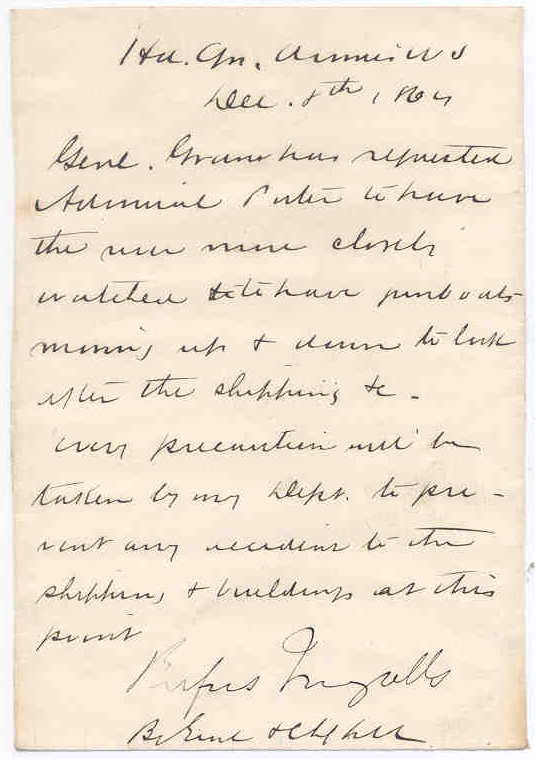 Hd. Qrs. Armies U S
Dec. 8th, 1864
Genl. Grant has requested
Admiral Porter to have
the river more closely
watched & to have gunboats
moving up & down to look
after the shipping &c -
Every precaution will be
taken by my Dept. to pre-
vent any accident to the
shipping & buildings at this
point
Rufus Ingalls